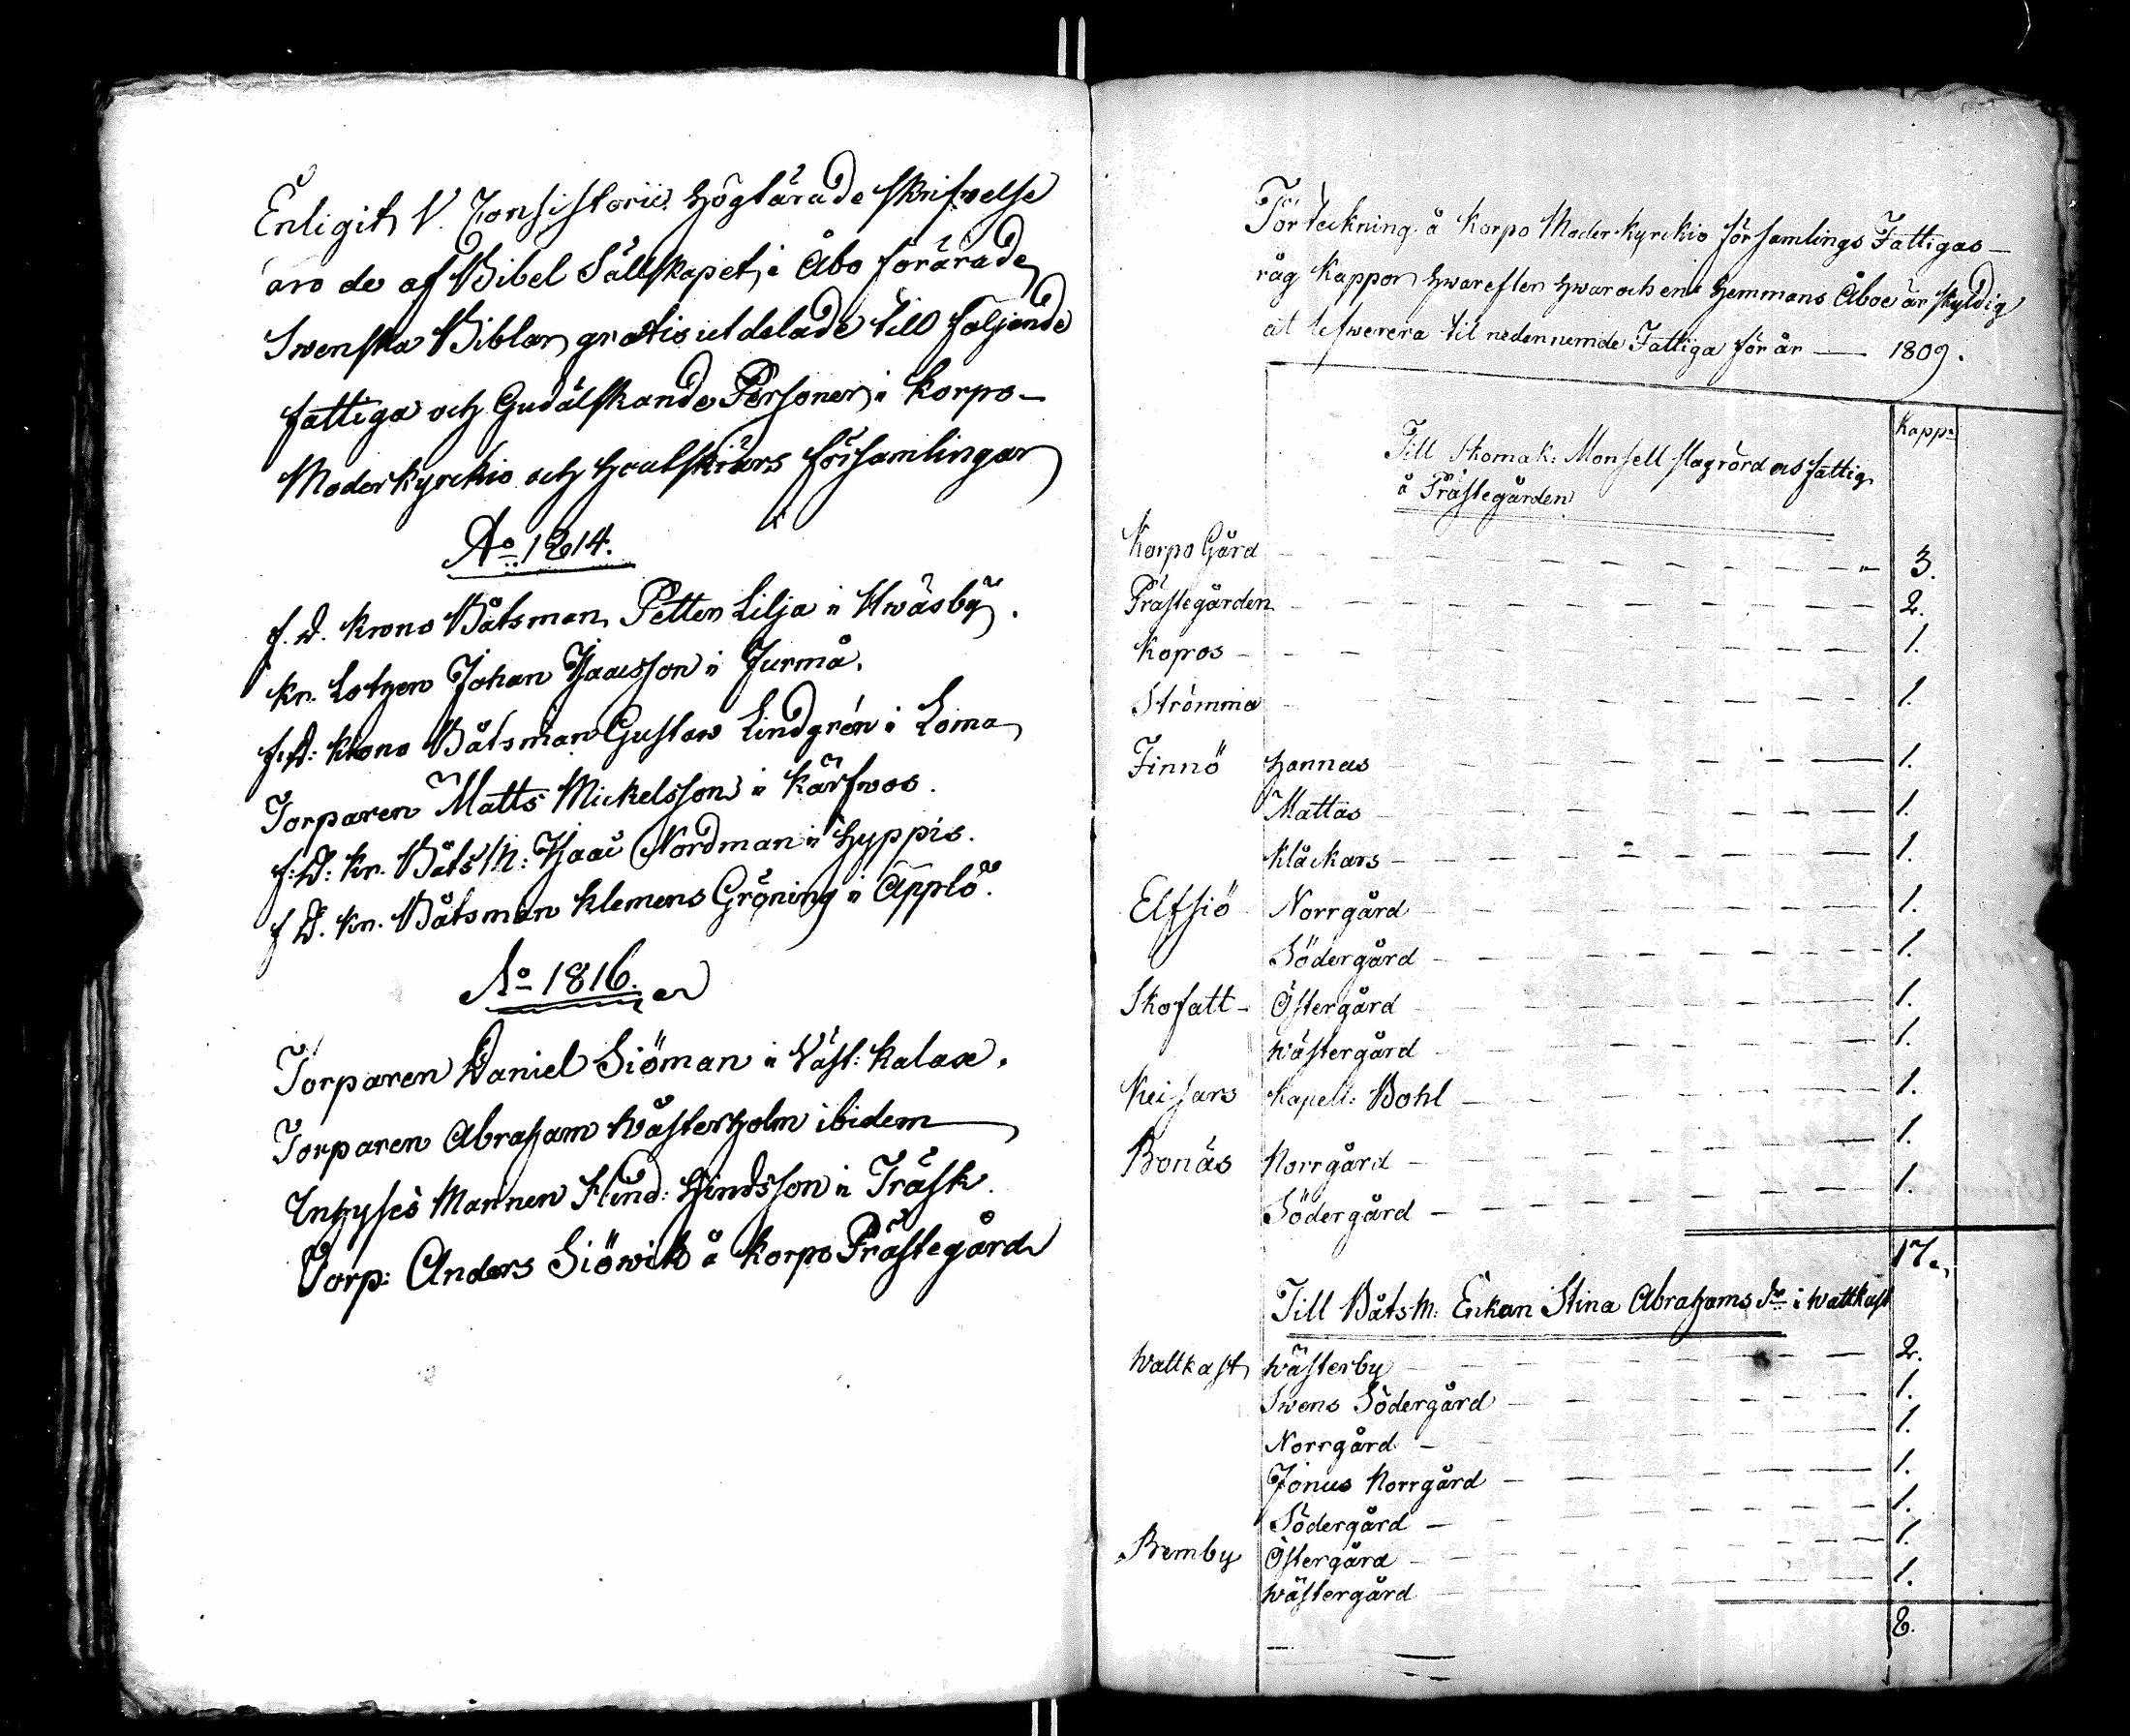 Enligit V. Consistorii Höglärade skrifwelse
äro de af Bibel Sällskapet i Åbo förärade
Swenska Biblar gratis utdelade till följande
fattiga och Gudälskande Personer i Korpo
Moderkyrckio och Houtskiärs församlingar
A:o 1814.
f.D. Krono Båtsman Petter Lilja i Hwäsby.
Kr. Lotzen Johan Isaacsson i Jurmå.
f.D: Krono Båtsman Gustaw Lindgrén i Loma
Torparen Matts Mickelsson i Kärfwos.
f:D: Kr. BåtsM: Isaac Nordman i Hyppis.
f D. Kr. Båtsman Klemens Gröning i Äpplö.
A:o 1816.
Torparen Daniel Siöman i Väst: Kalax.
Torparen Abraham Wästerholm ibidem
Inhyses Mannen Hind: Hindsson i Träsk.
Torp: Anders Siöwik å Korpo Prästegård
Förteckning å Korpo Moder kyrckio församlings Fattigas
råg Kappor hwarefter hwar och en Hemmans Åboe är skyldig
at lefwerera til nedennemde Fattiga för år — 1809.
Kapp:
Till Skomak: Monsell slagrörd och fattig
å Prästegården
Korpo Gård 3.
Prästegården 2.
Kopros 1.
Strömma 1.
Finnö Hannus 1.
Mattas 1.
Kläckars 1.
Elfsiö Norrgård 1.
Södergård 1.
Skofatt Östergård 1.
Wästergård 1.
Keisars Kapell: Bohl 1.
Bonäs Norrgård 1.
Södergård 1.
17.
Till BåtsM: Enkan Stina Abrahams d:r i Wattkast
Wattkast Wästerby 2.
Swens Södergård 1.
Norrgård 1.
Jönus Norrgård 1.
Södergård 1.
Bremby Östergård 1.
Wästergård 1.
8.